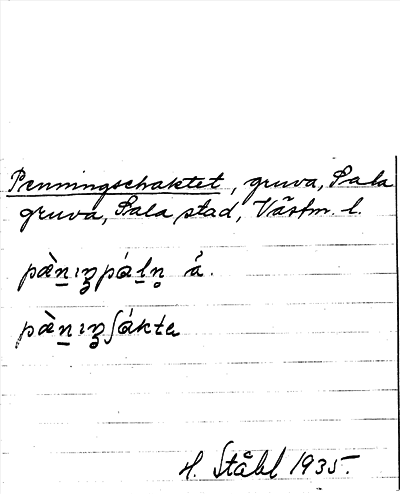 Penningschaktet, gruva, Sala
gruva, Sala stad, Västm. l.
pæ̀n̲ıŋpál̲n̥ å.
pæ̀n̲ıŋʃákta
H. Ståhl 1935.